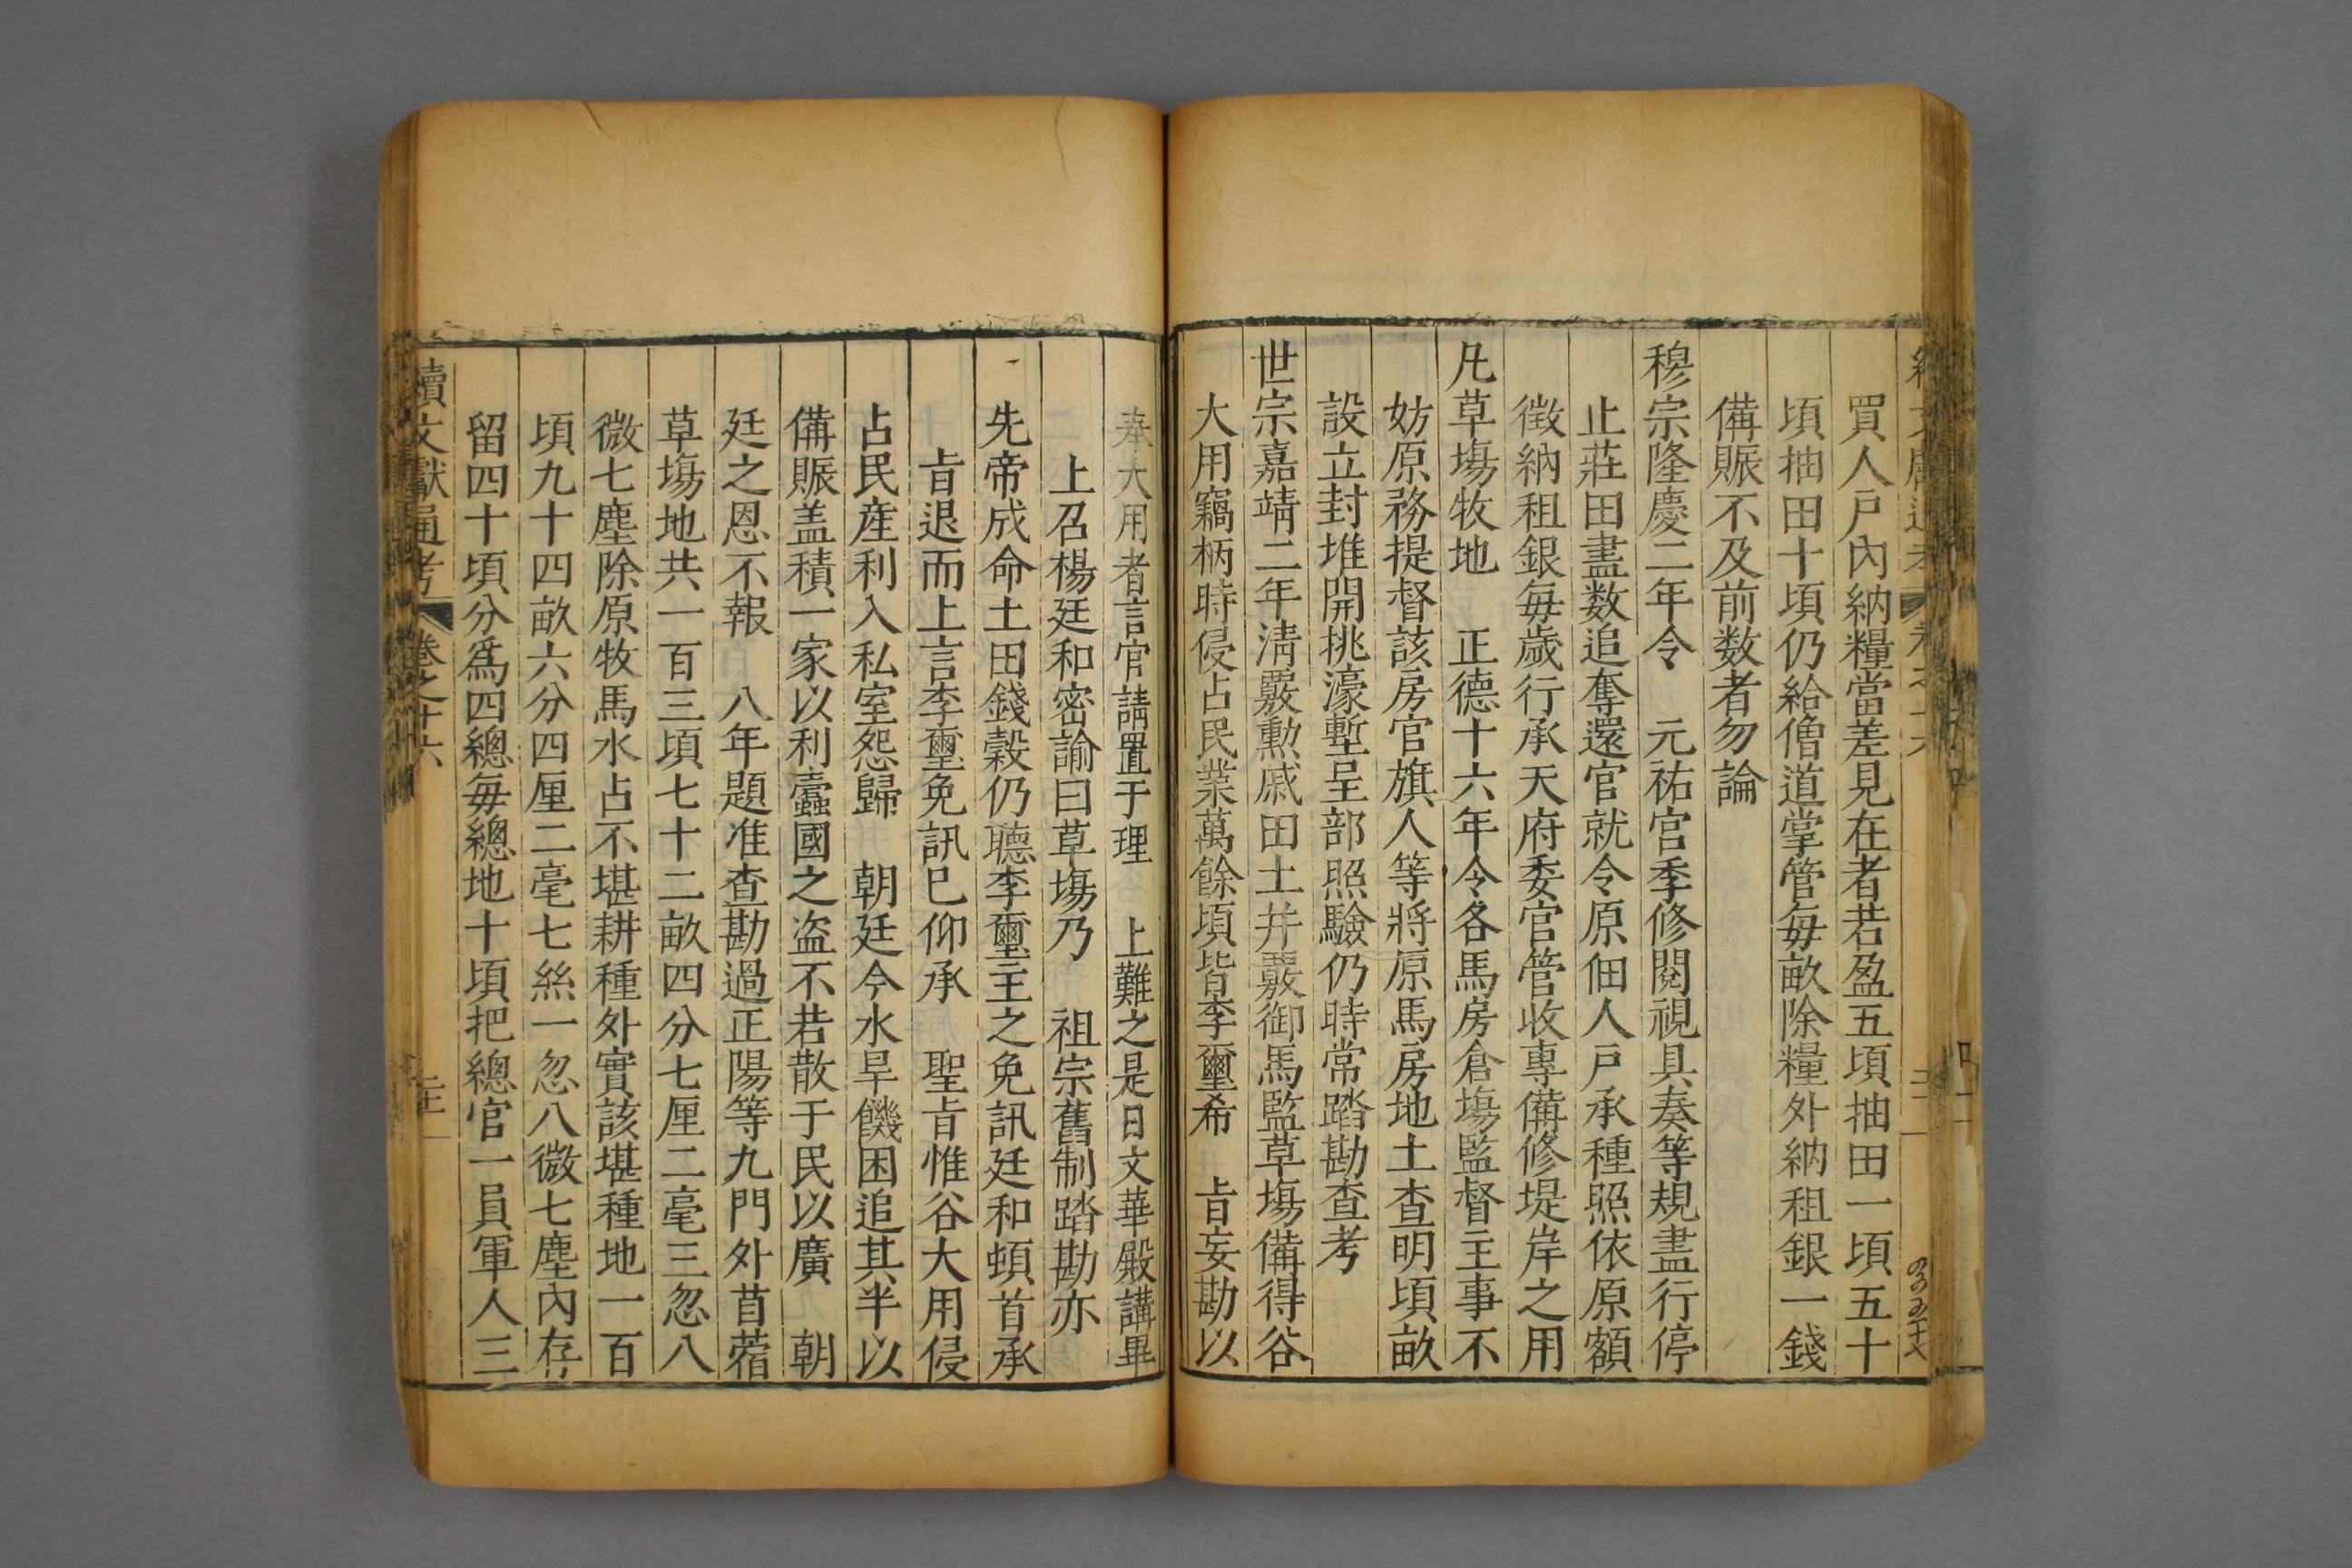 買人戶內納糧當差見在者若盈五頃抽田一頃五十
頃抽田十頃仍給僧道掌管毎畝除糧外納租銀一錢
備賑不及前数者勿論
穆宗隆慶二年令 元祐宫季修閱視具奏等規盡行停
止莊田盡数追奪還官就令原佃人戶承種照依原額
徵納租銀毎歲行承天府委官管收專備修堤岸之用
凡草塲牧地 正德十六年令各馬房倉塲監督主事不
妨原務提督該房官旗人等將原馬房地土查明頃畝
設立封堆開挑濠塹呈部照驗仍時常踏勘查考
世宗嘉靖二年淸覈勲戚田土并覈御馬監草塲備得谷
大用竊柄時侵占民業萬餘頃皆李璽希 旨妄勘以
奉大用者言官請置于理 上難之是日文華殿講畢
上召楊廷和密諭曰草塲乃 祖宗舊制踏勘亦
先帝成命土田錢穀仍聽李璽主之免訊廷和頓首承
旨退而上言李璽免訊巳仰承 聖旨惟谷大用侵
占民産利入私室怨歸 朝廷今水旱饑困追其半以
備賑盖積一家以利蠹國之盗不若散于民以廣 朝
廷之恩不報 八年題准查勘過正陽等九門外苜蓿
草塲地共一百三頃七十二畝四分七厘二毫三忽八
微七塵除原牧馬水占不堪耕種外實該堪種地一百
頃九十四畝六分四厘二毫七絲一忽八微七塵內存
留四十頃分爲四總毎總地十頃把總官一員軍人三
續文獻通考 卷之十六